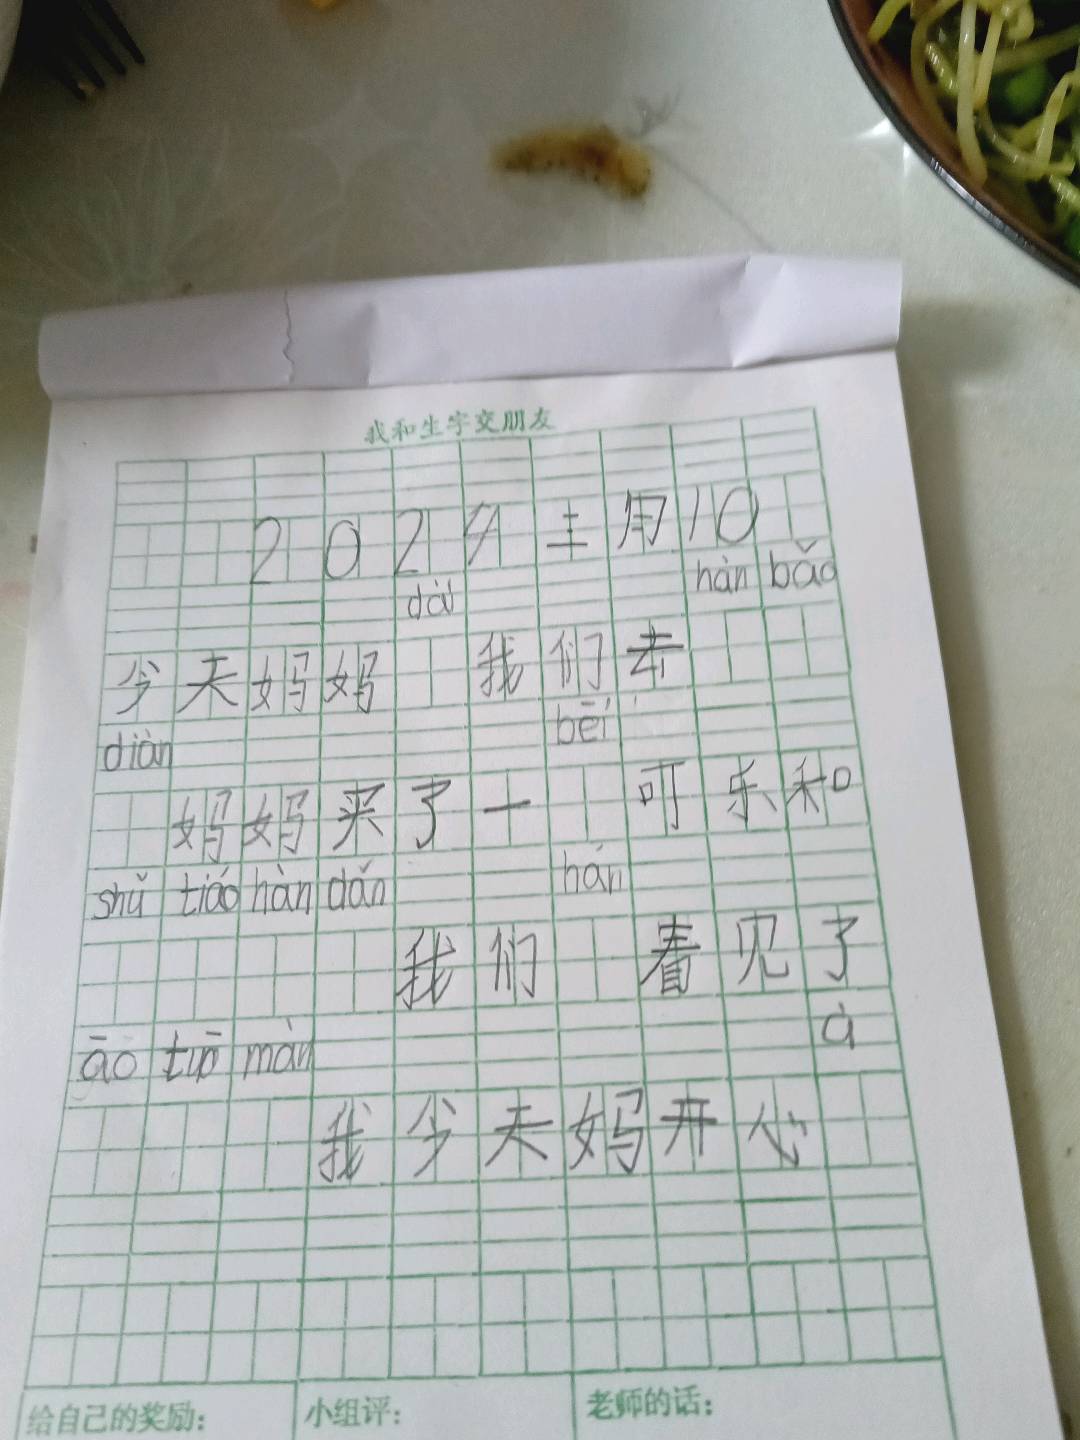 我和生字交朋友
2024三月10
dài hàn bǎo
今天妈妈 我们去
diàn bēi
妈妈买了一 可乐和
shǔ tiáo hàn dǎn hán
我们 看见了
āo tuō màn à
我今天妈开心
给自己的奖励: 小组评: 老师的话: